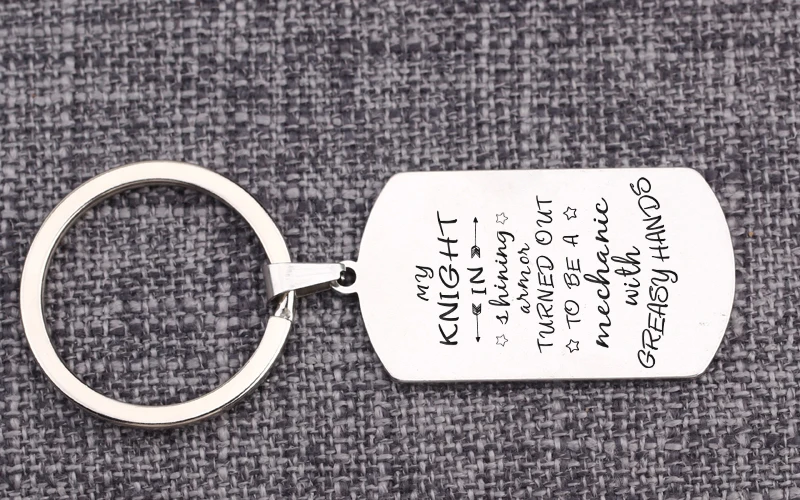 MY
KNIGHT
IN
shining
armor
TURNED OUT
TO BE A
mechanic
with
GREASY HANDS